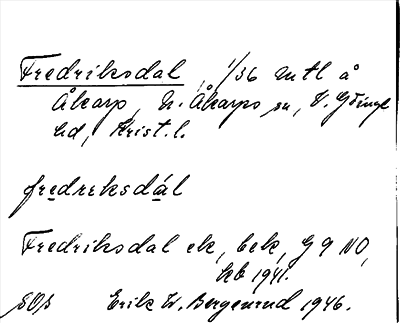 Fredriksdal, 1/36 mtl å
Åkarp, N. Åkarps sn, V. Göinge
hd, Krist. l.
fredreksdál
Fredriksdal ek, bek, G 9 NO,
hb 1941.
SOS Erik W. Bergenrud 1946.